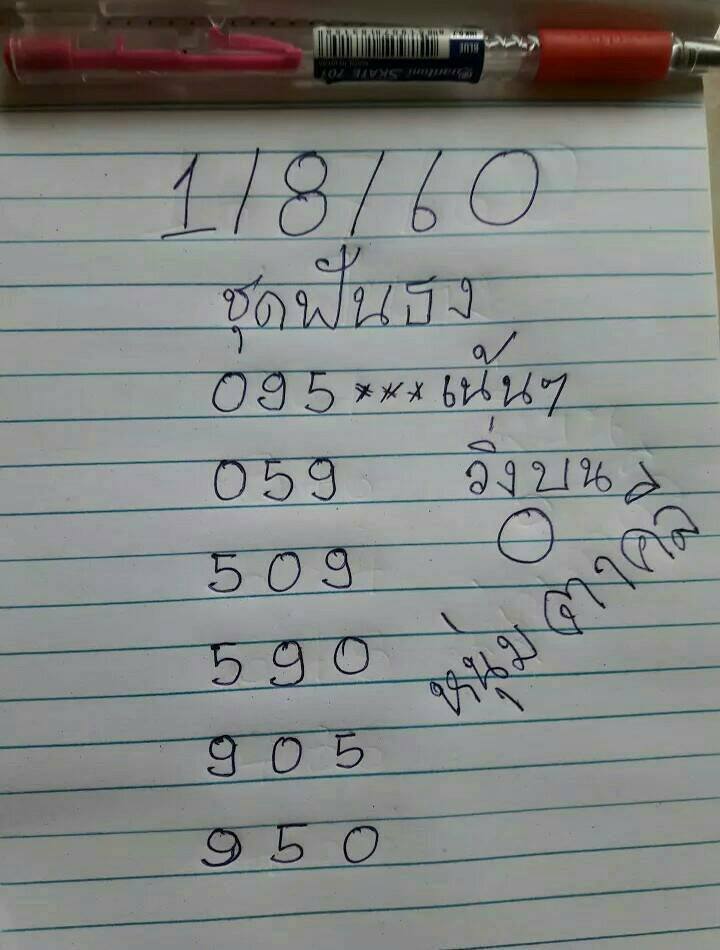 BLUE
Quantum SKATE 707
1/8/60
ชุดฟันธง
095 *** เน้นๆ
059 วิ่งบน
0
509
590
905
950
หนุ่ม ตาคลี